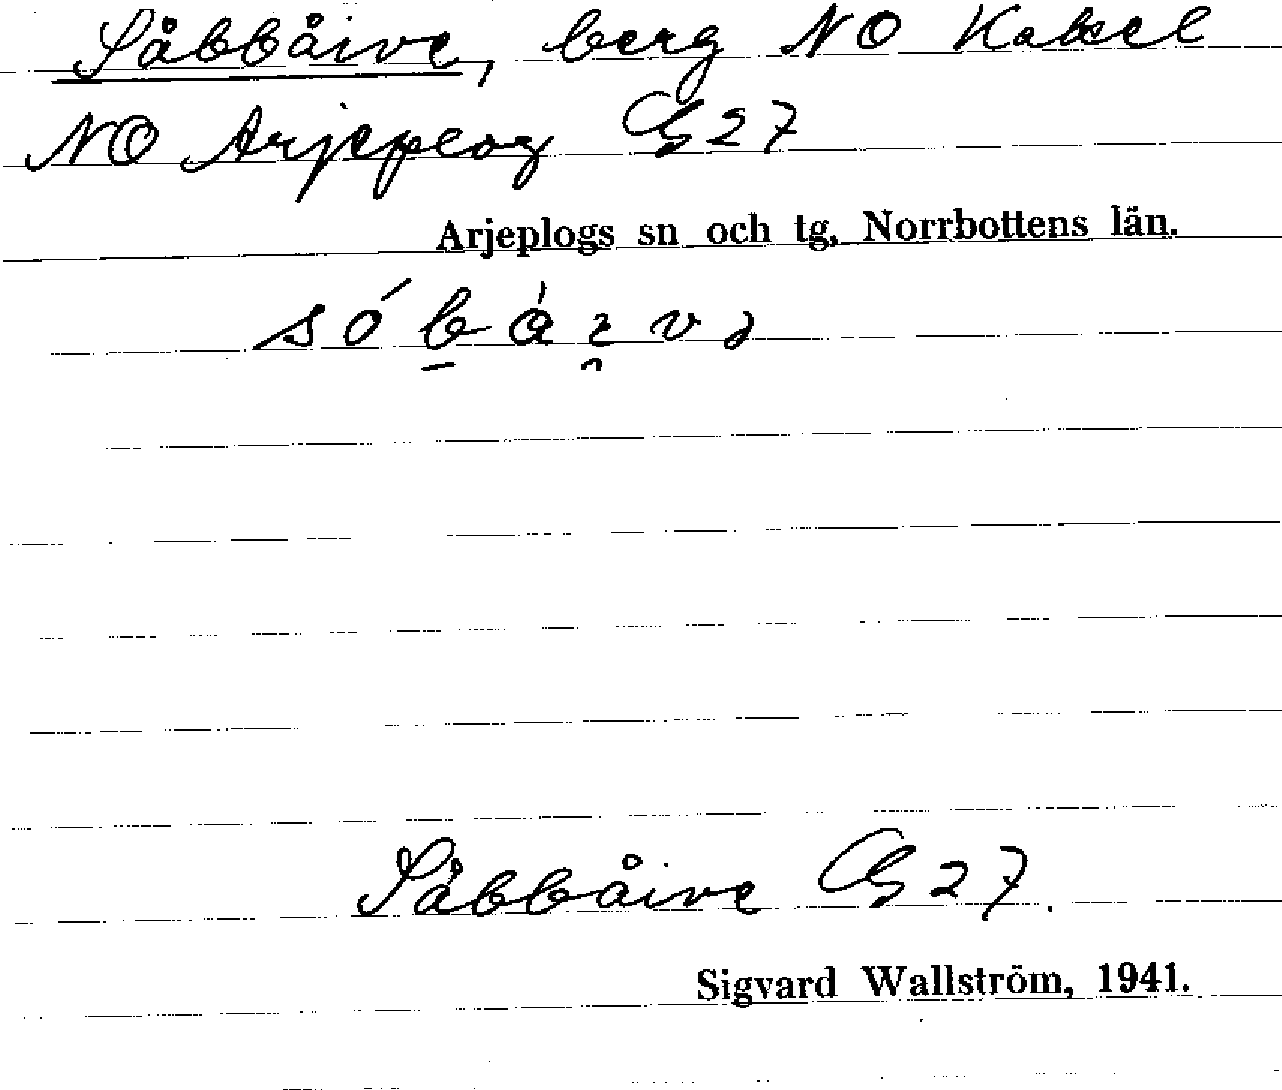 Såbbåive, berg NO Kakel
NO Arjeplog G27
Arjeplogs sn och tg, Norrbottens län.
Såbbåive G27.
Sigvard Wallström, 1941.